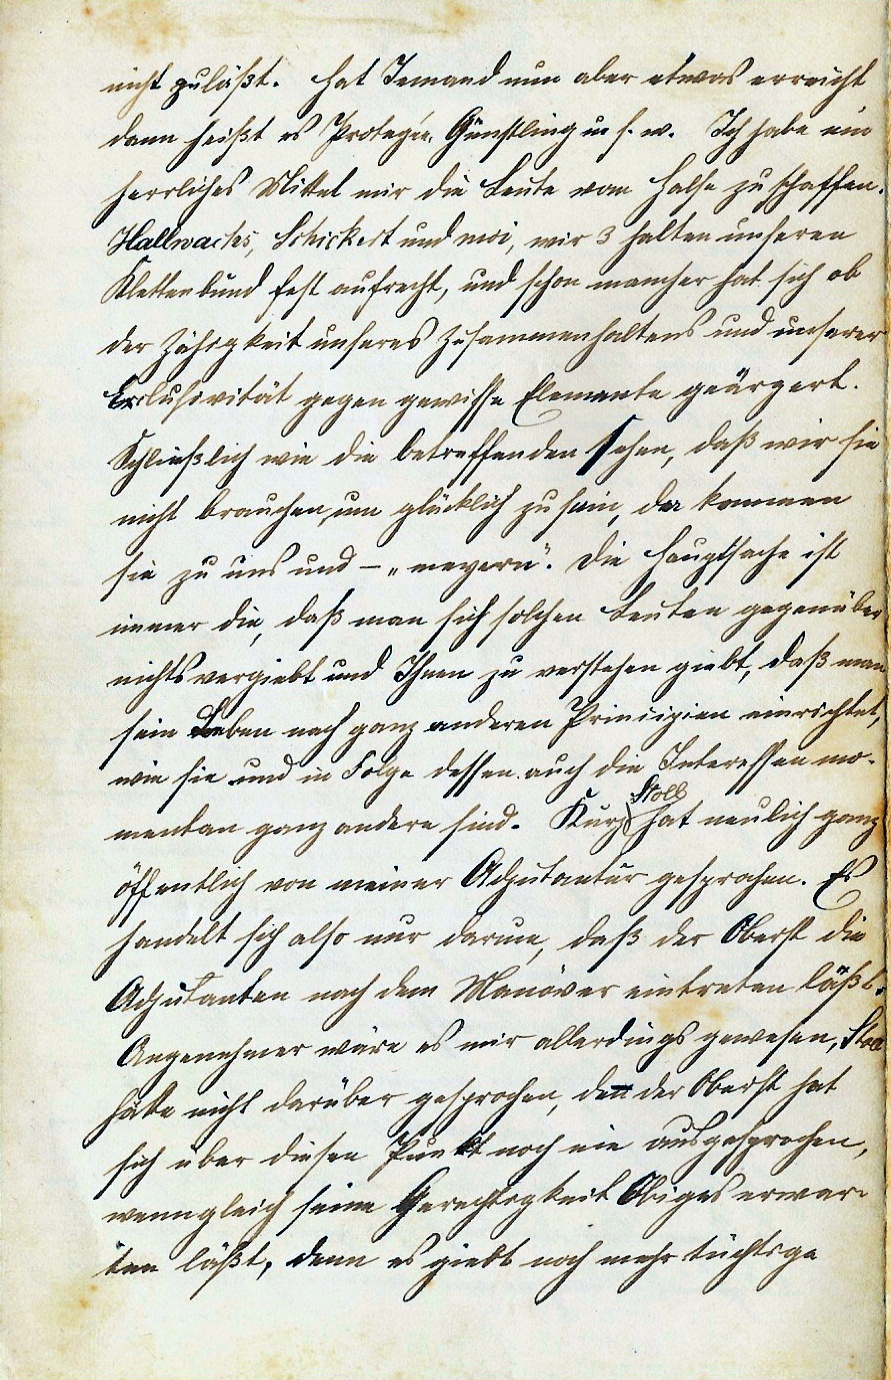 nicht zuläßt. Hat Jemand nun aber etwas erreicht
dann heißt es Protegée, Günstling u. s. w. Ich habe ein
herrliches Mittel mir die Leute vom Halse zu schaffen.
Hallwachs, Schickert und moi, wir 3 halten unseren
Klettenbund fest aufrecht, und schon mancher hat sich ob
der Zähigkeit unseres Zusammenhaltens und unserer
Exclusivität gegen gewisse Elemente geärgert.
Schließlich wie die betreffenden sehen, daß wir sie
nicht brauchen, um glücklich zu sein, da kommen
sie zu uns und – „meyern“. Die Hauptsache ist
immer die, daß man sich solchen Leuten gegenüber
nichts vergiebt und Ihnen zu verstehen giebt, daß man
sein Leben nach ganz anderen Principien einrichtet,
wie sie und in Folge dessen auch die Interessen mo-
mentan ganz andere sind. Kurz Stoll hat neulich ganz
öffentlich von meiner Adjutantur gesprochen. Es
handelt sich also nur darum, daß der Oberst die
Adjutanten nach dem Manöver eintreten läßt.
Angenehmer wäre es mir allerdings gewesen, Stoll
hätte nicht darüber gesprochen, denn der Oberst hat
sich über diesen Punkt noch nie ausgesprochen,
wenngleich seine Gerechtigkeit Obiges erwar-
ten läßt, denn es giebt noch mehr tüchtige